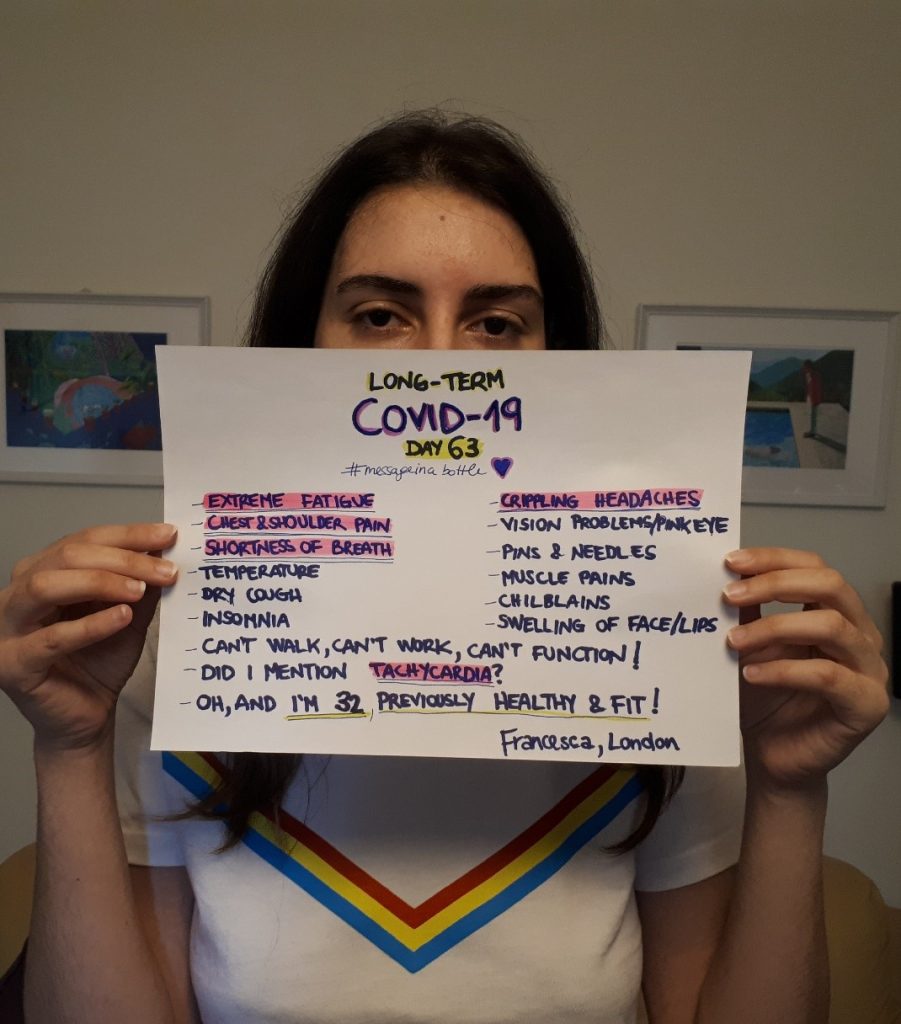 LONG-TERM
COVID-19
DAY 63
#messageina bottle
- EXTREME FATIGUE
- CHEST & SHOULDER PAIN
- SHORTNESS OF BREATH
- TEMPERATURE
- DRY COUGH
- INSOMNIA
- CRIPPLING HEADACHES
- VISION PROBLEMS/PINK EYE
- PINS & NEEDLES
- MUSCLE PAINS
- CHILBLAINS
- SWELLING OF FACE/LIPS
- CAN'T WALK, CAN'T WORK, CAN'T FUNCTION!
- DID I MENTION TACHYCARDIA?
- OH, AND I'M 32, PREVIOUSLY HEALTHY & FIT!
Francesca, London